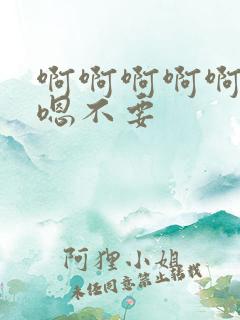 啊啊啊啊啊
嗯不要
阿狸小姐
未经同意禁止转载